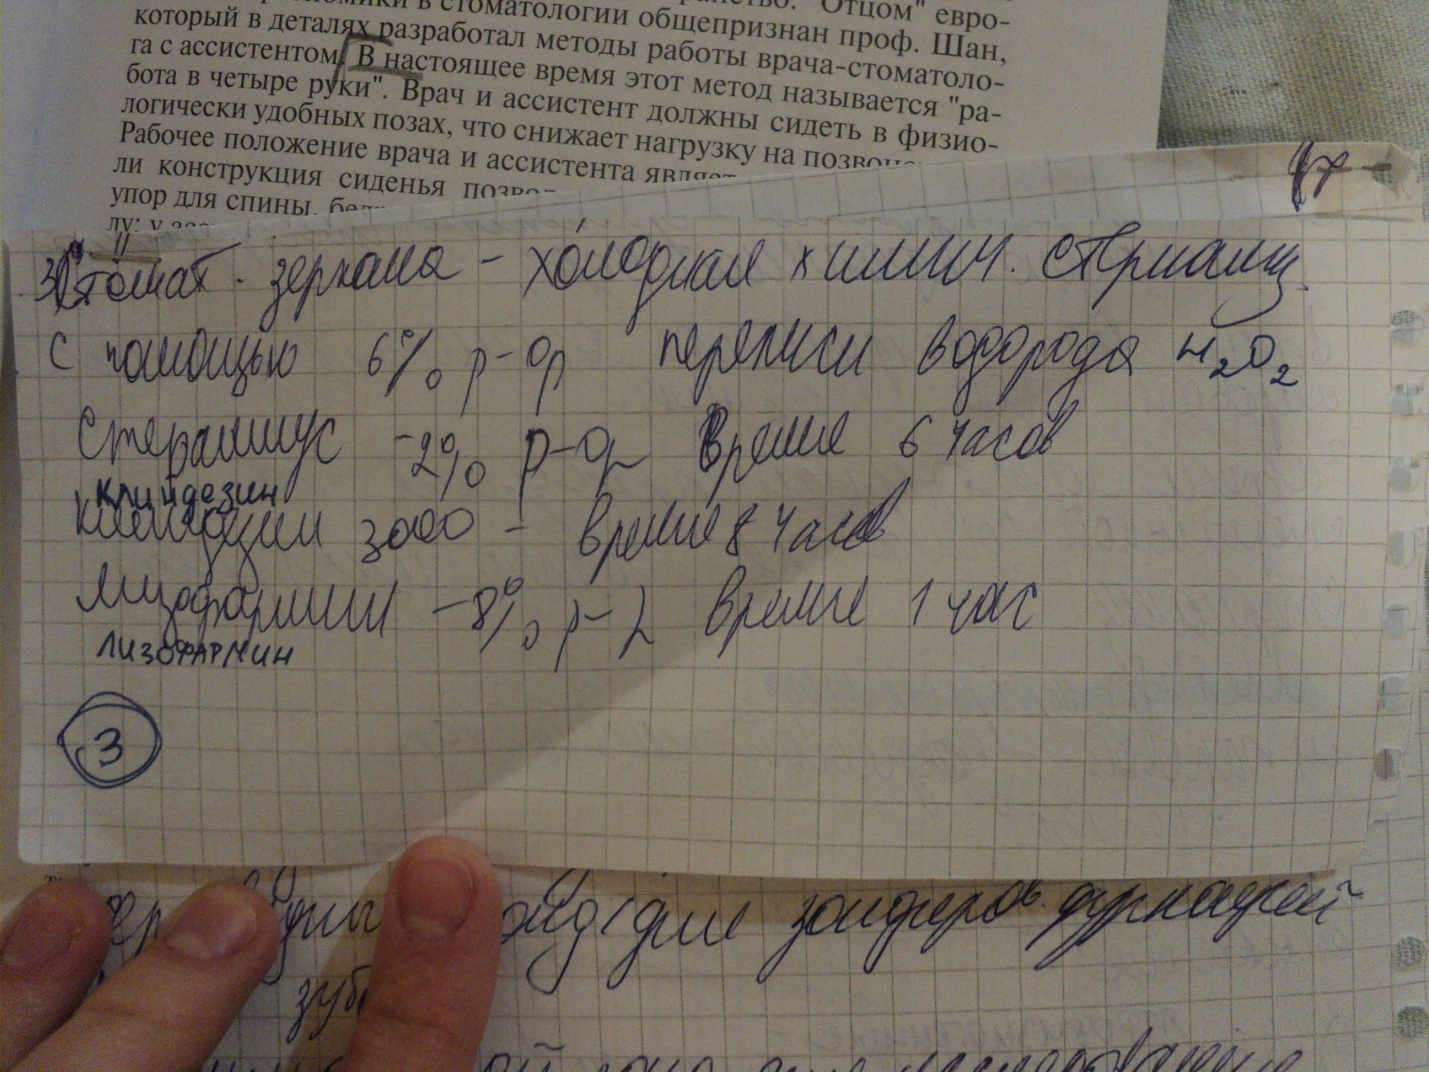 в стоматологии общепризнан проф. Шан, "Отцом" евро-
который в деталях разработал методы работы врача-стоматоло-
га с ассистентом. В настоящее время этот метод называется "ра-
бота в четыре руки". Врач и ассистент должны сидеть в физио-
логически удобных позах, что снижает нагрузку на
Рабочее положение врача и ассистента
ли конструкция сиденья
упор для спины,
лу: у
17
Стомат. зеркала - холодная химич. стриализ.
с помощью 6% р-ор перекиси водорода H₂O₂
Стераниус -2% р-ор Время 6 часов
клийдезин
3000 - время 8 часов
Лизоформин -8% р- время 1 час
ЛИЗОФАРМИН
3
(для зондиров. фуркаций
зуб